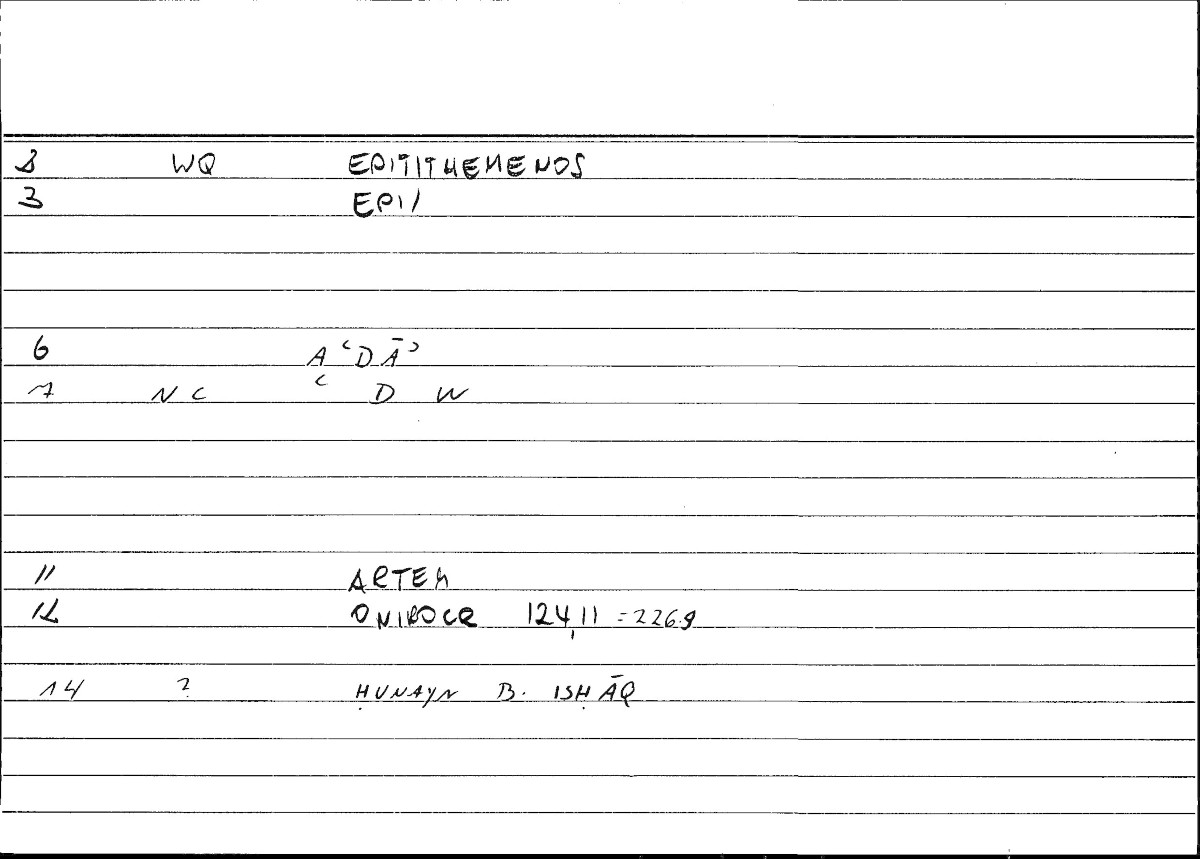 2 WQ EPITITHEMENOS
3 EPI/
6 AʿDĀʾ
7 NC ʿ D W
11 ARTEM
12 ONIROCR 124,11 = 226.9
14 ? ḤUNAYN B. ISḤĀQ